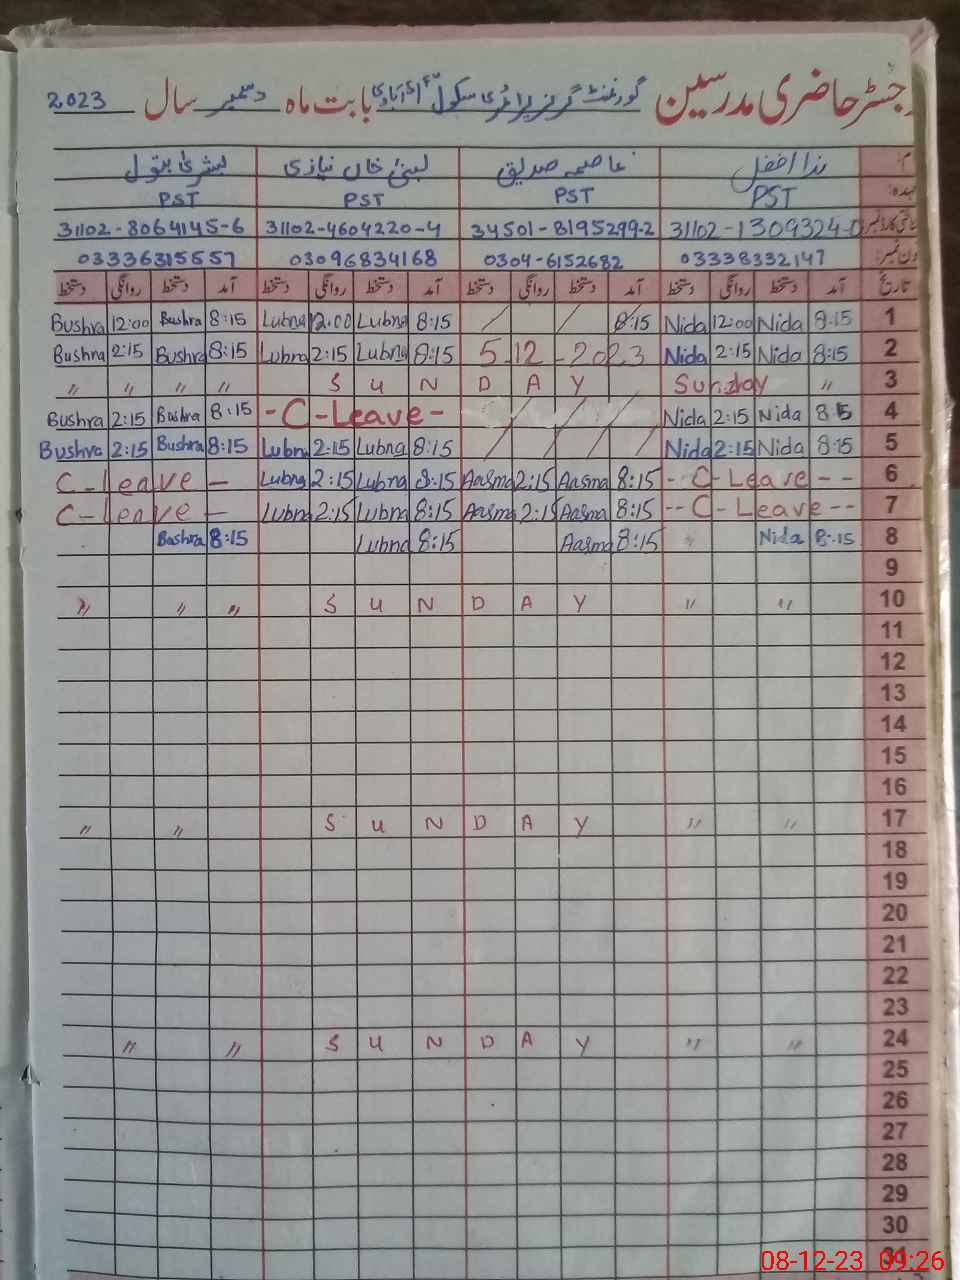 رجسٹر حاضری مدرسین گورنمنٹ گرلز پرائمری سکول بابت ماہ دسمبر سال 2023
ندا افضل عاصمہ صدیق لبنیٰ خان نیازی بشریٰ بتول
PST PST PST PST
31102-4604220-4 31102-8064145-6 34501-8195299-2 31102-1309324-0
03336315557 03096834168 0304-6152682 03338332147
تاریخ آمد دستخط روانگی دستخط آمد دستخط روانگی دستخط آمد دستخط روانگی دستخط آمد دستخط روانگی دستخط
Bushra 12:00 Bushra 8:15 Lubna 12:00 Lubna 8:15 / / 8:15 Nida 12:00 Nida 8:15 1
Bushra 2:15 Bushra 8:15 Lubna 2:15 Lubna 8:15 5-12-2023 Nida 2:15 Nida 8:15 2
" " " " S U N D A Y Sunday " 3
Bushra 2:15 Bushra 8:15 -C-Leave- / / / Nida 2:15 Nida 8:15 4
Bushra 2:15 Bushra 8:15 Lubna 2:15 Lubna 8:15 / / / / Nida 2:15 Nida 8:15 5
C-leave - Lubna 2:15 Lubna 8:15 Aasma 2:15 Aasma 8:15 - C-Leave -- 6
C-leave - Lubna 2:15 Lubna 8:15 Aasma 2:15 Aasma 8:15 --C-Leave-- 7
Bushra 8:15 Lubna 8:15 Aasma 8:15 " Nida 8:15 8
9
" " " S U N D A Y " " 10
11
12
13
14
15
16
" " S U N D A Y " " 17
18
19
20
21
22
23
" " S U N D A Y " " 24
25
26
27
28
29
30
31
08-12-23 09:26